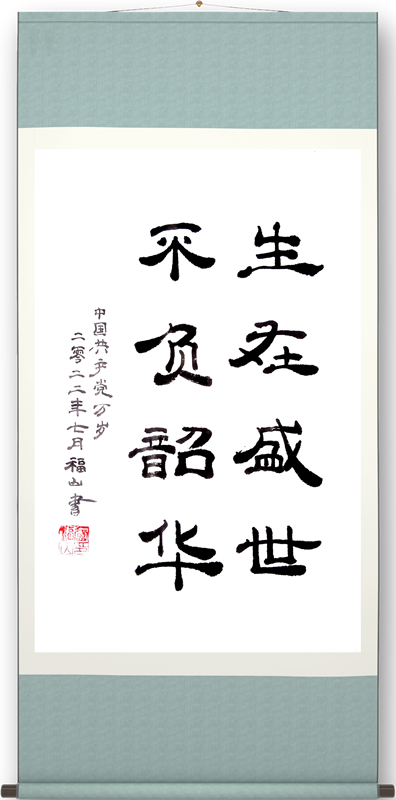 生在盛世
不负韶华
中国共产党万岁
二零二二年七月福山書